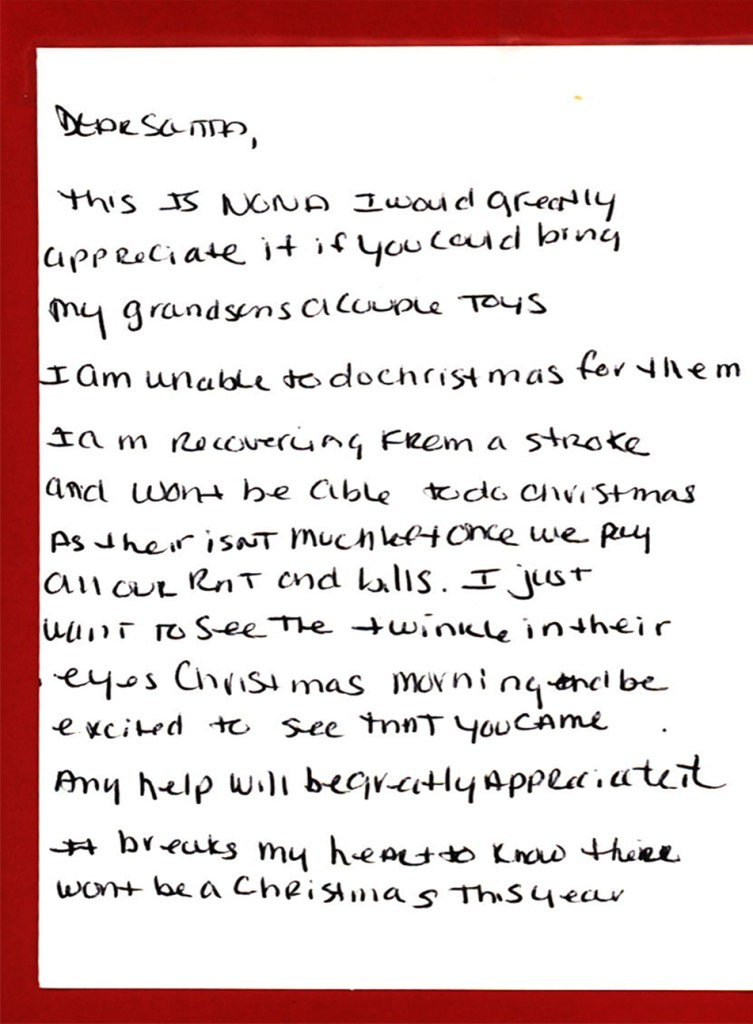 DEAR SANTA,
this IS NONA I would greatly
appreciate it if you could bring
my grandsons a couple Toys
I am unable to do christmas for them
I am Recovering FRom a stroke
and wont be able to do christmas
As their isnt much left once we pay
all our RnT and bills. I just
want to see The twinkle in their
eyes Christmas morning and be
excited to see that you came.
Any help will be greatly Appreciated
It breaks my heart to know there
wont be a Christmas This year